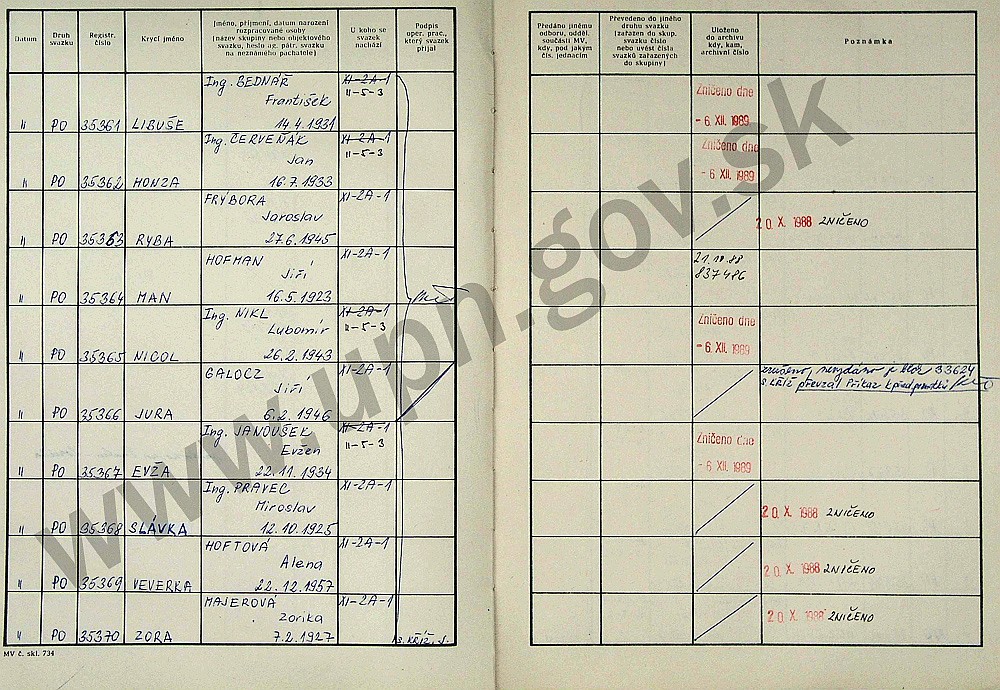 Datum
Druh svazku
Registr. číslo
Krycí jméno
Jméno, příjmení, datum narození
rozpracované osoby
(název skupiny nebo objektového
svazku, heslo ag. pátr. svazku
na neznámého pachatele)
U koho se
svazek
nachází
Podpis
oper. prac.,
který svazek
přijal
Předáno jinému
odboru, odděl.
součásti MV,
kdy, pod jakým
čís. jednacím
Převedeno do jiného
druhu svazku
(zařazen do skup.
svazku číslo
nebo uvést čísla
svazků zařazených
do skupiny)
Uloženo
do archivu
kdy, kam,
archivní číslo
Poznámka
Ing. BEDNÁŘ XI-2A-1
František II-5-3 Zničeno dne
" PO 35361 LIBUŠE 14.4.1931 - 6. XII. 1989
Ing. ČERVEŇÁK XI-2A-1 Zničeno dne
Jan II-5-3
" PO 35362 HONZA 16.7.1933 - 6. XII. 1989
FRÝBORA XI-2A-1
Jaroslav 20. X. 1988 ZNIČENO
" PO 35363 RYBA 27.6.1945
HOFMAN XI-2A-1
Jiří 837486
" PO 35364 MAN 16.5.1923
Ing. NIKL XI-2A-1 Zničeno dne
Lubomír II-5-3
" PO 35365 NICOL 26.2.1943 - 6. XII. 1989
GALOCZ XI-2A-1 zrušeno, nevydáno 33624
Jiří převzal Příkaz
" PO 35366 JURA 6.2.1946
Ing. JANOUŠEK XI-2A-1 Zničeno dne
Evžen II-5-3
" PO 35367 EVŽA 22.11.1934 - 6. XII. 1989
Ing. PRAVEC XI-2A-1
Miroslav 20. X. 1988 ZNIČENO
" PO 35368 SLÁVKA 12.10.1925
HOFTOVÁ XI-2A-1
Alena 20. X. 1988 ZNIČENO
" PO 35369 VEVERKA 22.12.1957
MAJEROVÁ XI-2A-1
Zorika 20. X. 1988 ZNIČENO
" PO 35370 ZORA 7.2.1927 KŘÍŽ J.
MV č. skl. 734
www.upn.gov.sk